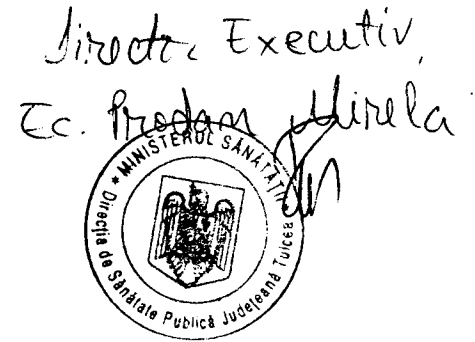 Director Executiv,
Ec. Prodan Mirela
* MINISTERUL SĂNĂTĂȚII
Direcția de Sănătate Publică Județeană Tulcea